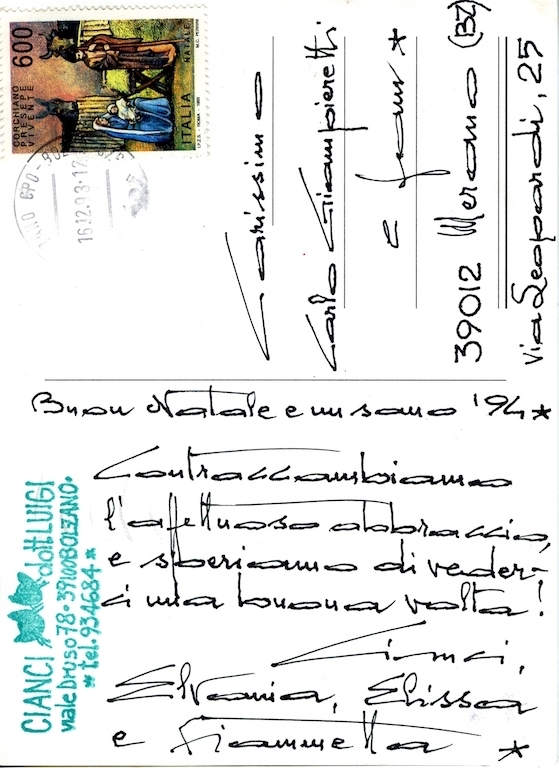 600
CORCHIANO
PRESEPE
VIVENTE
ITALIA
NATALE
I.P.Z.S. ROMA 1993
16.12.93.12
Carissimo
Carlo Giampieretti
e fam*
39012 Merano (BZ)
Via Leopardi, 25
Buon Natale e un sano '94*
Contraccambiamo
l'affettuoso abbraccio,
e speriamo di veder-
ci una buona volta!
Cianci,
Elvania, Elissa
e Fiammetta *
CIANCI dott LUIGI
viale Druso 78 • 39100 BOLZANO •
* tel. 934684 *